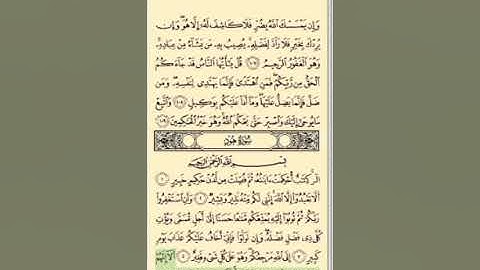 وَإِن يَمْسَسْكَ ٱللَّهُ بِضُرٍّ فَلَا كَاشِفَ لَهُۥٓ إِلَّا هُوَ ۖ وَإِن
يُرِدْكَ بِخَيْرٍ فَلَا رَآدَّ لِفَضْلِهِۦ ۚ يُصِيبُ بِهِۦ مَن يَشَآءُ مِنْ عِبَادِهِۦ ۚ
وَهُوَ ٱلْغَفُورُ ٱلرَّحِيمُ ١٠٧ قُلْ يَٰٓأَيُّهَا ٱلنَّاسُ قَدْ جَآءَكُمُ
ٱلْحَقُّ مِن رَّبِّكُمْ ۖ فَمَنِ ٱهْتَدَىٰ فَإِنَّمَا يَهْتَدِى لِنَفْسِهِۦ ۖ وَمَن
ضَلَّ فَإِنَّمَا يَضِلُّ عَلَيْهَا ۖ وَمَآ أَنَا۠ عَلَيْكُم بِوَكِيلٍ ١٠٨ وَٱتَّبِعْ
مَا يُوحَىٰٓ إِلَيْكَ وَٱصْبِرْ حَتَّىٰ يَحْكُمَ ٱللَّهُ ۚ وَهُوَ خَيْرُ ٱلْحَٰكِمِينَ ١٠٩
سُورَةُ هُودٍ
بِسْمِ ٱللَّهِ ٱلرَّحْمَٰنِ ٱلرَّحِيمِ
الٓر ۚ كِتَٰبٌ أُحْكِمَتْ ءَايَٰتُهُۥ ثُمَّ فُصِّلَتْ مِن لَّدُنْ حَكِيمٍ خَبِيرٍ ١
أَلَّا تَعْبُدُوٓا۟ إِلَّا ٱللَّهَ ۚ إِنَّنِى لَكُم مِّنْهُ نَذِيرٌ وَبَشِيرٌ ٢ وَأَنِ ٱسْتَغْفِرُوا۟
رَبَّكُمْ ثُمَّ تُوبُوٓا۟ إِلَيْهِ يُمَتِّعْكُم مَّتَٰعًا حَسَنًا إِلَىٰٓ أَجَلٍ مُّسَمًّى وَيُؤْتِ
كُلَّ ذِى فَضْلٍ فَضْلَهُۥ ۖ وَإِن تَوَلَّوْا۟ فَإِنِّىٓ أَخَافُ عَلَيْكُمْ عَذَابَ يَوْمٍ
كَبِيرٍ ٣ إِلَى ٱللَّهِ مَرْجِعُكُمْ ۖ وَهُوَ عَلَىٰ كُلِّ شَىْءٍ قَدِيرٌ ٤ أَلَآ إِنَّهُمْ